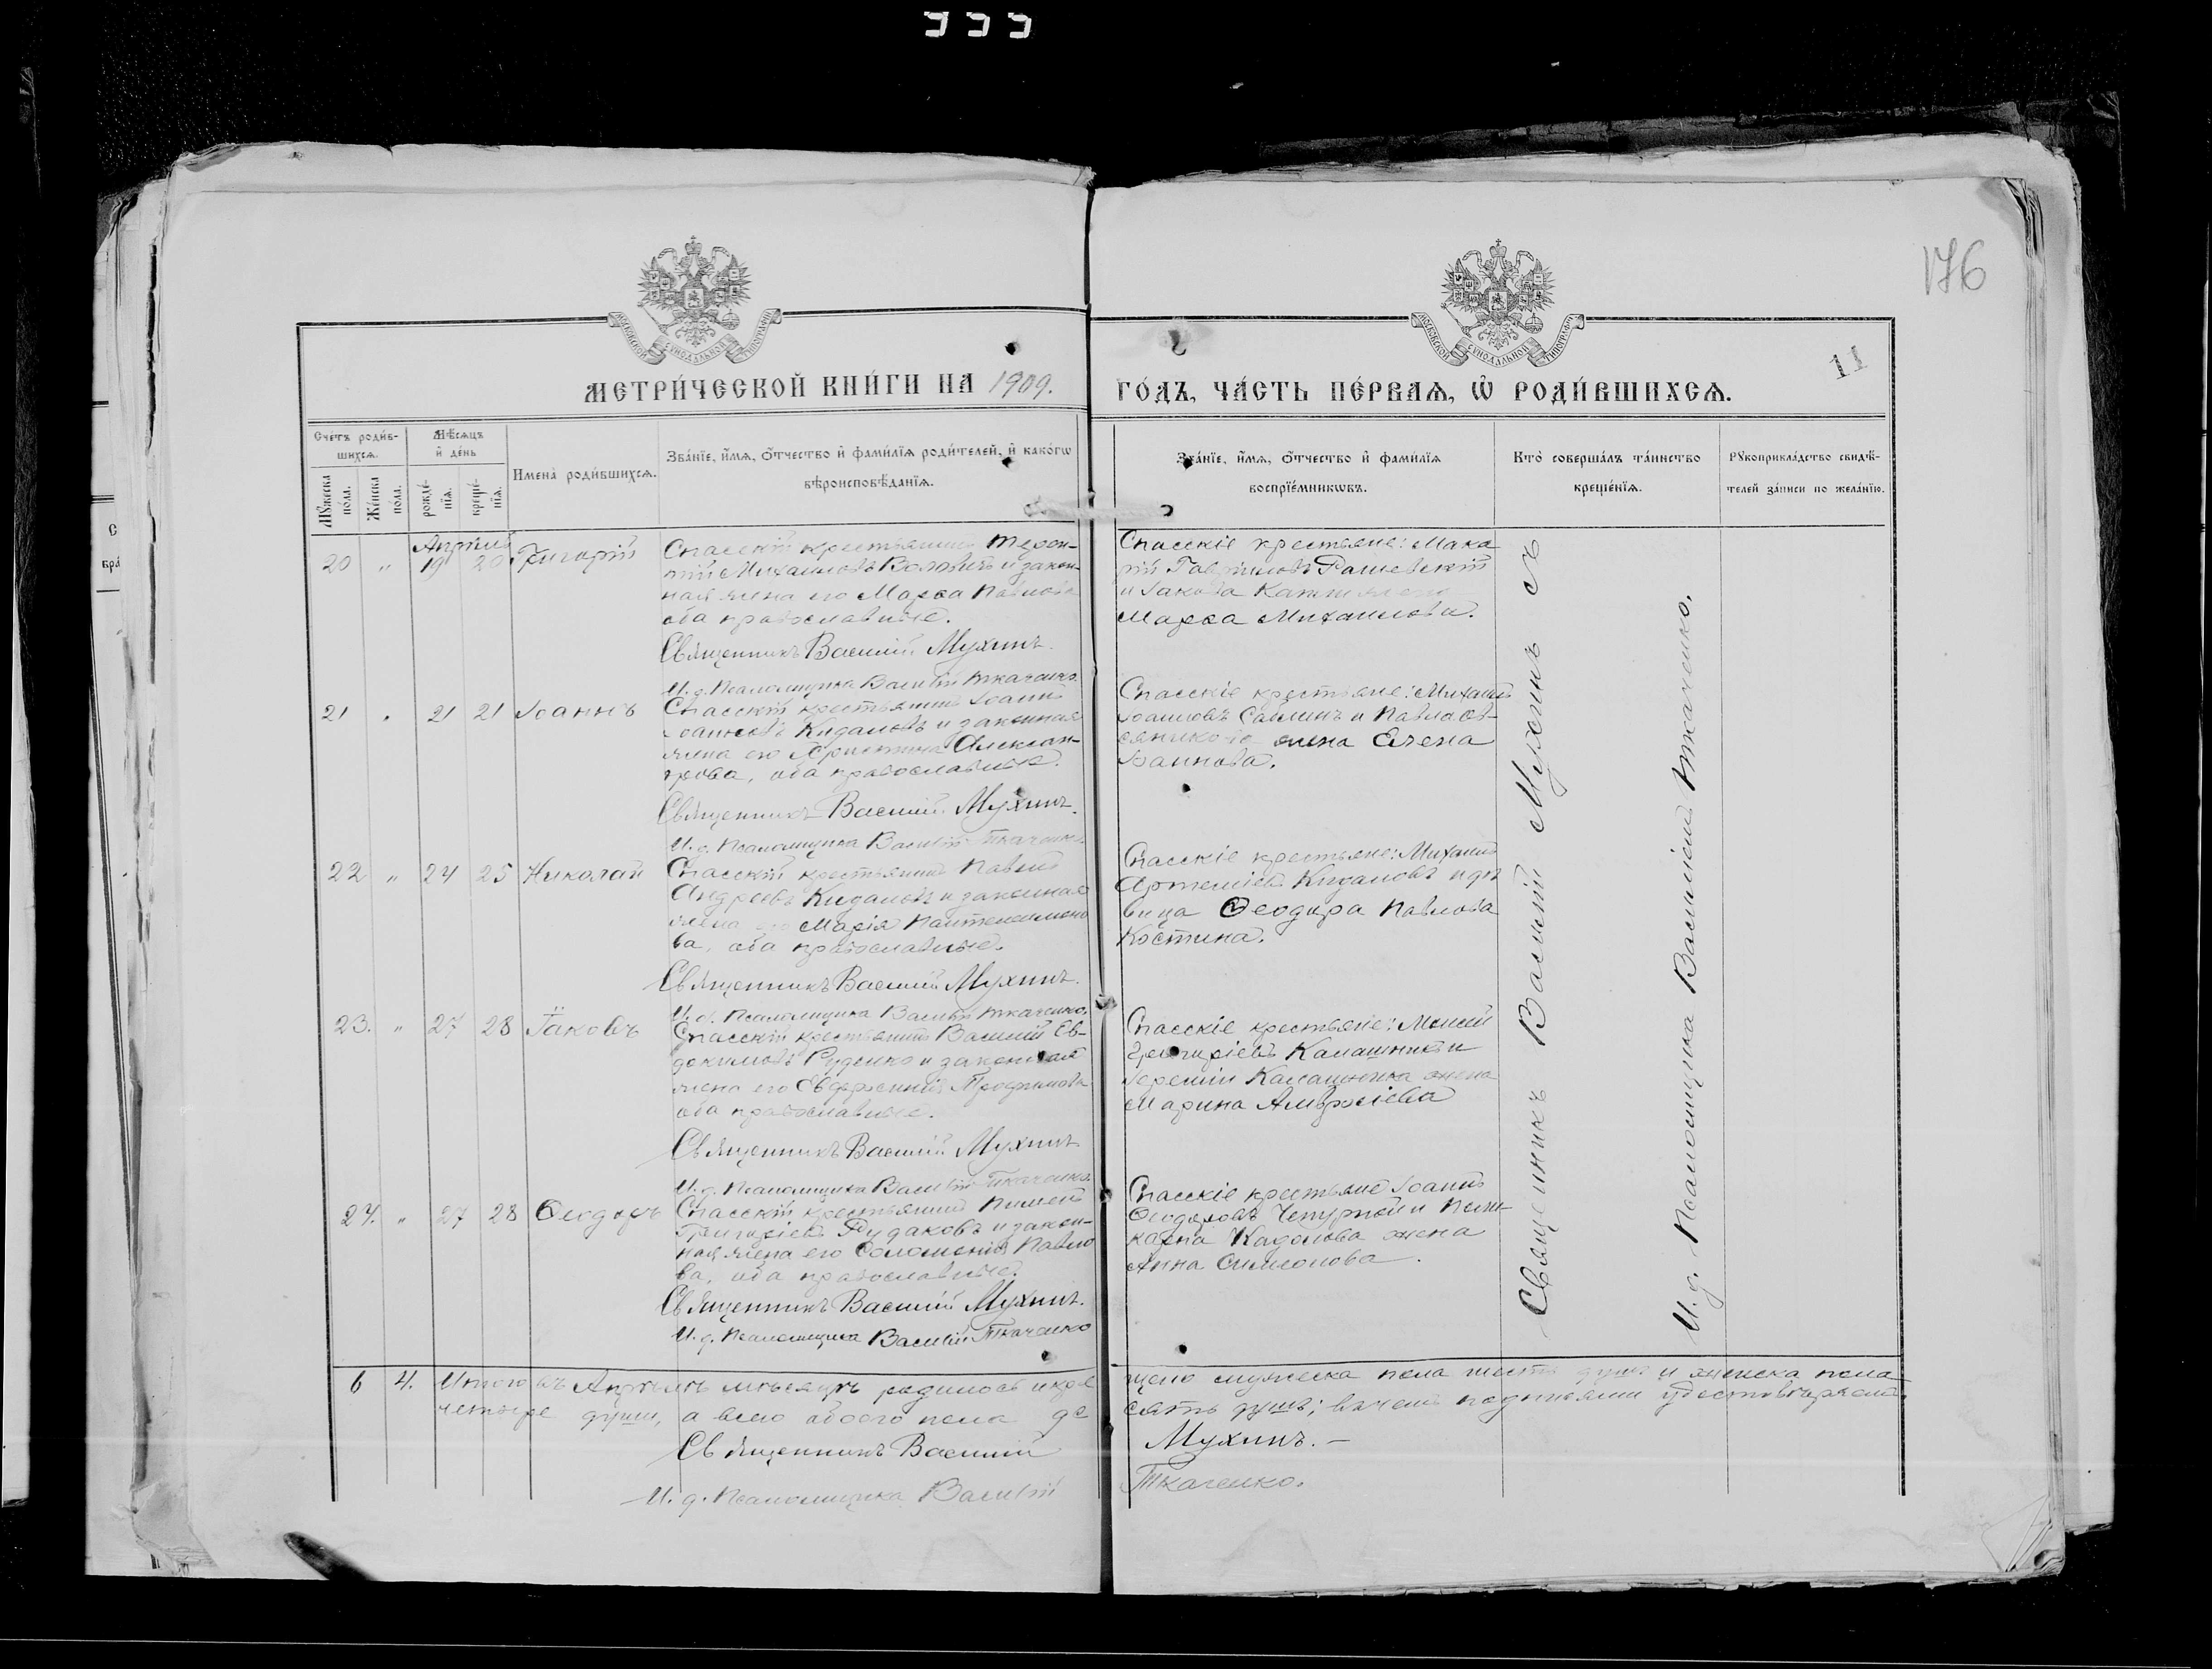 176
11
МОСКОВСКОЙ СѴНОДАЛЬНОЙ ТИПОГРАФІИ
МОСКОВСКОЙ СѴНОДАЛЬНОЙ ТИПОГРАФІИ
МЕТРИ́ЧЕСКОЙ КНИ́ГИ НА 1909. ГО́ДЪ, ЧА́СТЬ ПЕ́РВАѦ, Ѡ҆ РОДИ́ВШИХСѦ.
Сче́тъ роди́в-
шихсѧ.
Мꙋ́жеска по́ла.
Же́нска по́ла.
Мѣ́сѧцъ
и҆ де́нь
рожде́-
нїѧ.
креще́-
нїѧ.
И҆мена̀ роди́вшихсѧ.
Зва́нїе, и҆́мѧ, ѻ҆́тчество и҆ фами́лїѧ роди́телей, и҆ како́гѡ
вѣроисповѣ́данїѧ.
Зва́нїе, и҆́мѧ, ѻ҆́тчество и҆ фами́лїѧ
воспрїе́мникѡвъ.
Кто̀ соверша́лъ та́инство
креще́нїѧ.
Рꙋкоприкла́дство свидѣ́-
телей за́писи по жела́нїю.
Апрѣль
20 " 19 20 Григорій
Спасскій крестьянинъ Терен-
тій Михаиловъ и закон-
ная жена его Марѳа Павлова
оба православные.
Священникъ Василій Мухинъ.
И. д. Псаломщика Василій Ткаченко.
Спасскіе крестьяне: Мака
рій Гавріиловъ Рашевскій
и Іакова жена
Марѳа Михаилова.
21 " 21 21 Іоаннъ
Спасскій крестьянинъ Іоаннъ
Іоанновъ Кидаловъ и законная
жена его Христина Алексан-
дрова, оба православные.
Священникъ Василій Мухинъ.
И. д. Псаломщика Василій Ткаченко.
Спасскіе крестьяне: Михаилъ
Іоанновъ и Павла Ов-
сяникова жена Елена
Іоаннова.
22 " 24 25 Николай
Спасскій крестьянинъ Павелъ
Андреевъ Кидаловъ и законная
жена его Марія Пантелеимоно
ва, оба православные.
Священникъ Василій Мухинъ.
И. д. Псаломщика Василій Ткаченко.
Спасскіе крестьяне: Михаилъ
Артеміевъ Кидаловъ и дѣ
вица Ѳеодора Павлова
Костина.
23. " 27 28 Іаковъ
Спасскій крестьянинъ Василій Ев-
докимовъ Руденко и законная
жена его Евфросинія Трофимова
оба православные.
Священникъ Василій Мухинъ.
И. д. Псаломщика Василій Ткаченко.
Спасскіе крестьяне: Моисей
Григоріевъ Калашникъ и
Іереміи Калашника жена
Марина Амвросіева
24. " 27 28 Ѳеодоръ
Спасскій крестьянинъ Пименъ
Григоріевъ Рудаковъ и закон-
ная жена его Соломонія Павло
ва, оба православные.
Священникъ Василій Мухинъ.
И. д. Псаломщика Василій Ткаченко
Спасскіе крестьяне Іоаннъ
Ѳеодоровъ Чепурной и Поли-
карпа Кидалова жена
Анна Симеонова.
Священникъ Василій Мухинъ съ
И. д. Псаломщика Василіемъ Ткаченко.
6 4. Итого въ Апрѣлѣ мѣсяцѣ родилось и кре щено мужеска пола шесть душъ и женска пола
четыре души, а всего обоего пола де сять душъ; въ чемъ подписями удостовѣряемъ
Священникъ Василій Мухинъ. –
И. д. Псаломщика Василій Ткаченко.